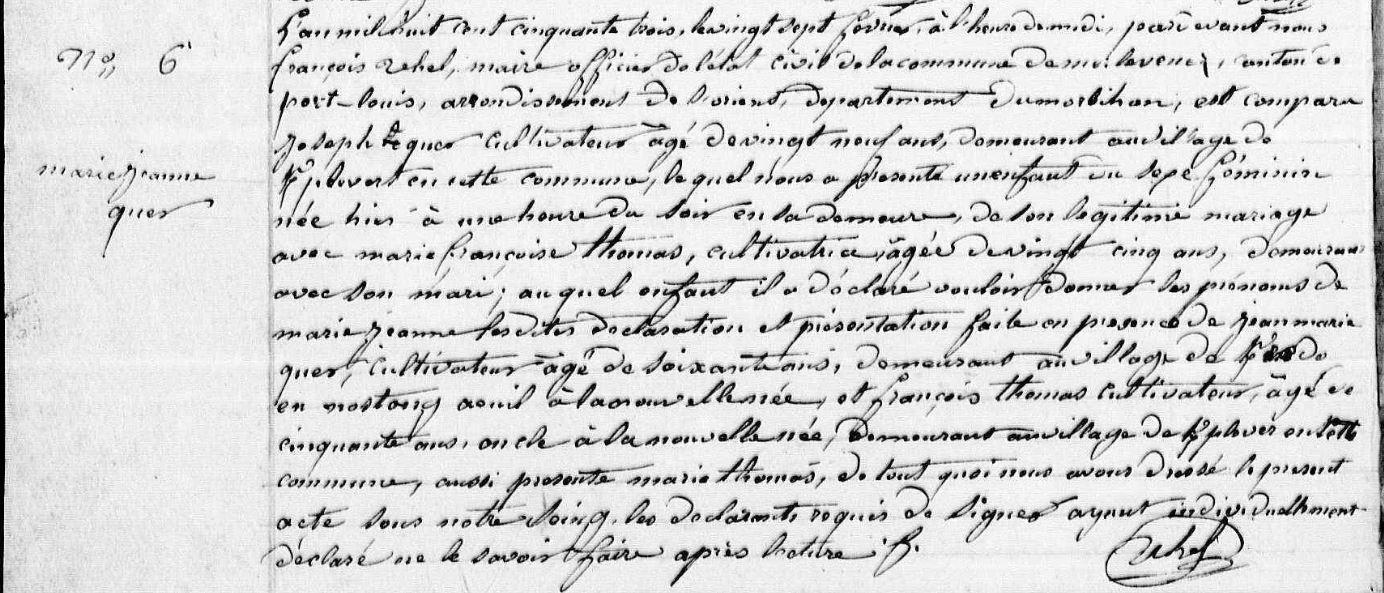 L'an mil huit cent cinquante trois, le vingt sept fevrier, à l'heure de midi, par devant nous
N° 6
françois Rehel, maire officier de l'état civil de la commune de merlevenez, canton de
port-louis, arrondissement de Lorient, departement du morbihan, est comparu
joseph quer cultivateur âgé de vingt neuf ans, demeurant au village de
marie jeanne
en cette commune, lequel nous a presenté un enfant du sexe féminin
quer
née hier à une heure du soir en sa demeure, de son legitime mariage
avec marie françoise thomas, cultivatrice, âgée de vingt cinq ans, demeurant
avec son mari; auquel enfant il a déclaré vouloir donner les prénoms de
marie jeanne lesdites declaration et présentation faite en presence de jean marie
quer, cultivateur âgé de soixante ans, demeurant au village de
en nostang aeuil à la nouvelle née, et françois thomas cultivateur, âgé de
cinquante ans, oncle à la nouvelle née, demeurant au village de en cette
commune, aussi presente marie thomas, de tout quoi nous avons dressé le present
acte sous notre seing, les declarants requis de signer ayant individuellment
déclaré ne le savoir faire après lecture ./.
Rehel